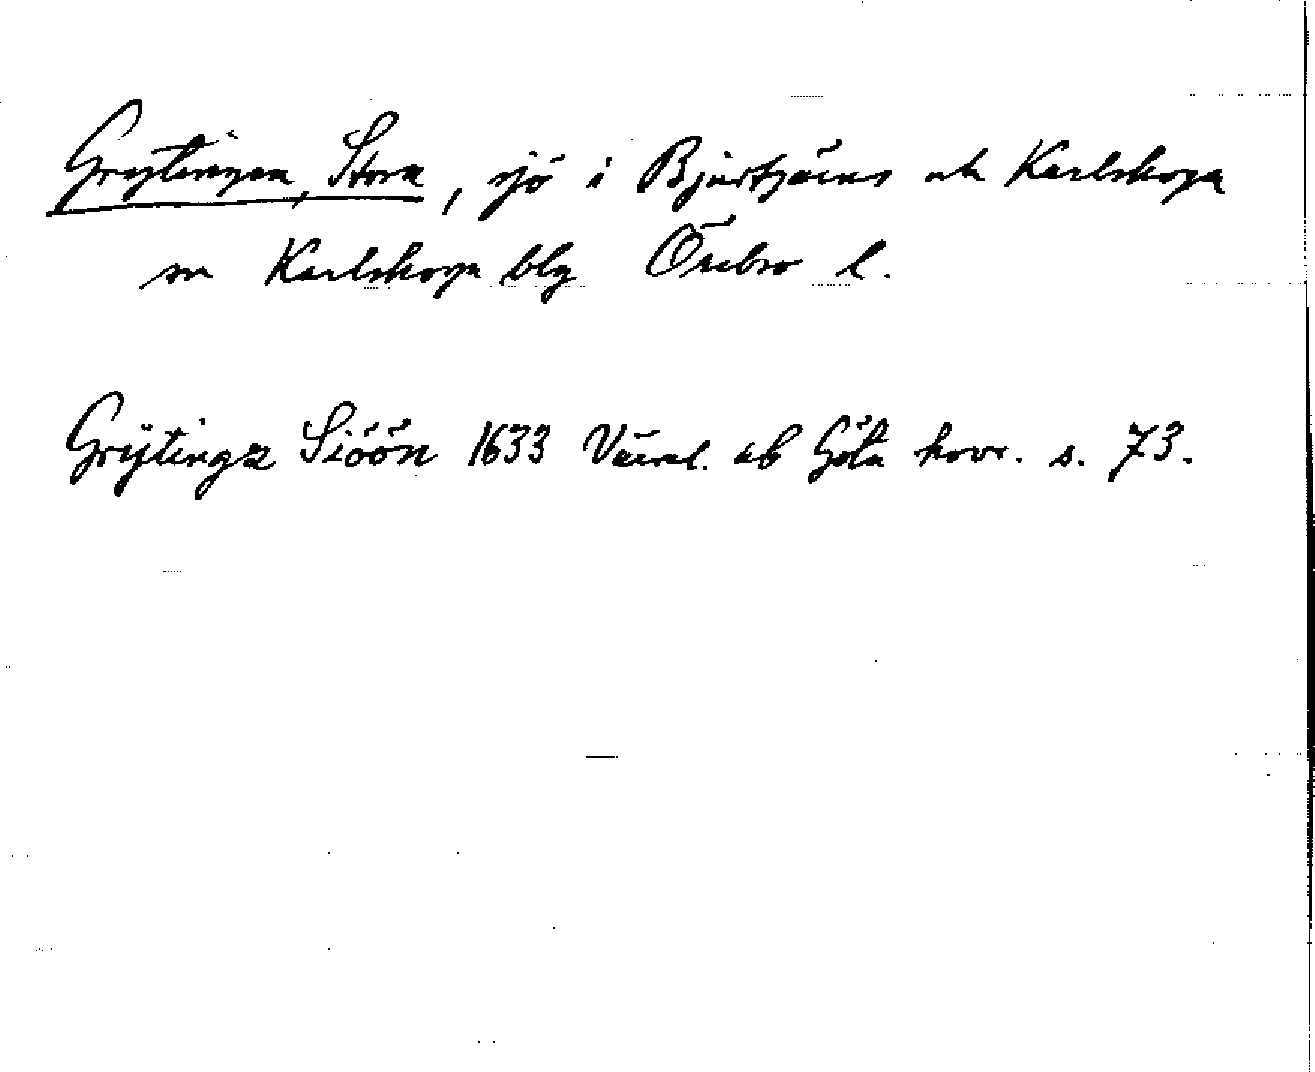 Grytingen, Stora, sjö i Bjurtjärns och Karlskoga
sn Karlskoga blg Örebro l.
Grÿtinga Siöön 1633 Värml. ab Göta hovr. s. 73.